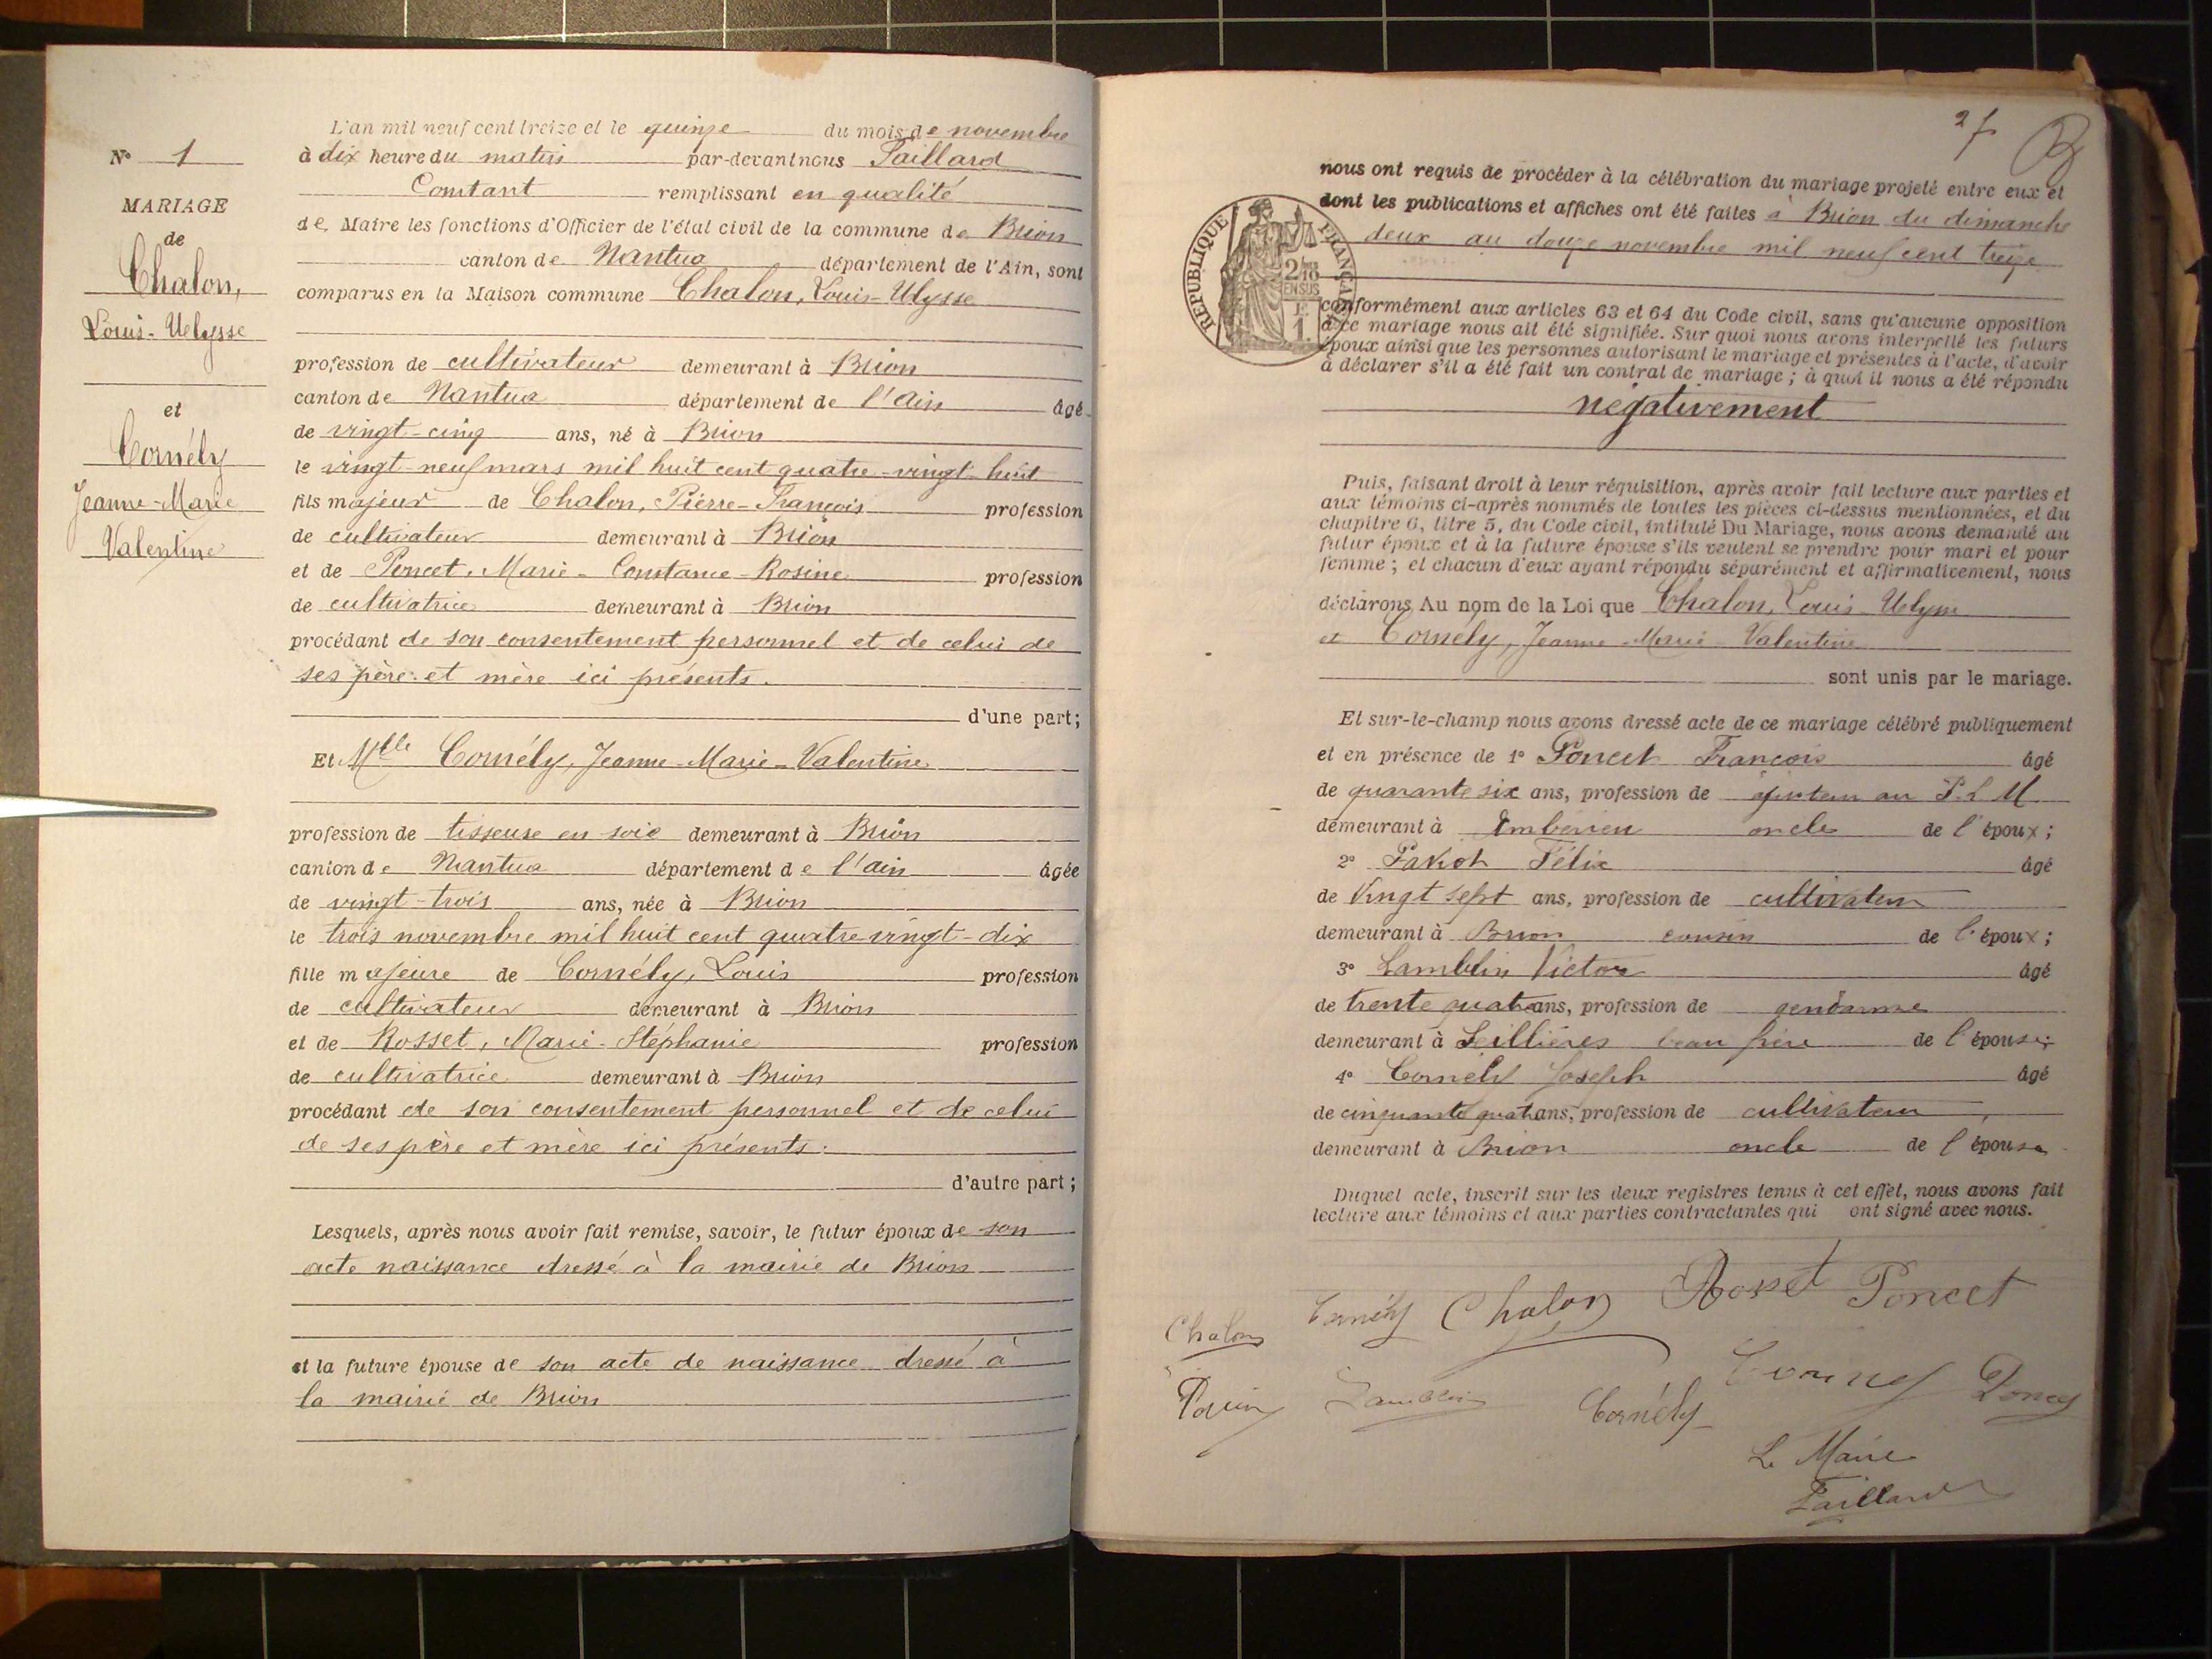 N° 1
MARIAGE
de
Chalon,
Louis-Ulysse
et
Cornély
Jeanne-Marie
Valentine
L'an mil neuf cent treize et le quinze du mois de novembre
à dix heure du matin par-devant nous Paillard
Constant remplissant en qualité
de Maire les fonctions d'Officier de l'état civil de la commune de Brion
canton de Nantua département de l'Ain, sont
comparus en la Maison commune Chalon, Louis-Ulysse
profession de cultivateur demeurant à Brion
canton de Nantua département de l'Ain âgé
de vingt-cinq ans, né à Brion
le vingt-neuf mars mil huit cent quatre-vingt-huit
fils majeur de Chalon, Pierre-François profession
de cultivateur demeurant à Brion
et de Poncet, Marie-Constance-Rosine profession
de cultivatrice demeurant à Brion
procédant de son consentement personnel et de celui de
ses père et mère ici présents.
d'une part;
Et Mlle Cornély, Jeanne-Marie-Valentine
profession de tisseuse en soie demeurant à Brion
canton de Nantua département de l'Ain âgée
de vingt-trois ans, née à Brion
le trois novembre mil huit cent quatre-vingt-dix
fille majeure de Cornély, Louis profession
de cultivateur demeurant à Brion
et de Rosset, Marie-Stéphanie profession
de cultivatrice demeurant à Brion
procédant de son consentement personnel et de celui
de ses père et mère ici présents.
d'autre part;
Lesquels, après nous avoir fait remise, savoir, le futur époux de son
acte naissance dressé à la mairie de Brion
et la future épouse de son acte de naissance dressé à
la mairie de Brion
27
nous ont requis de procéder à la célébration du mariage projeté entre eux et
dont les publications et affiches ont été faites à Brion du dimanche
deux au douze novembre mil neuf cent treize
RÉPUBLIQUE FRANÇAISE
conformément aux articles 63 et 64 du Code civil, sans qu'aucune opposition
à ce mariage nous ait été signifiée. Sur quoi nous avons interpellé les futurs
époux ainsi que les personnes autorisant le mariage et présentes à l'acte, d'avoir
à déclarer s'il a été fait un contrat de mariage; à quoi il nous a été répondu
négativement
Puis, faisant droit à leur réquisition, après avoir fait lecture aux parties et
aux témoins ci-après nommés de toutes les pièces ci-dessus mentionnées, et du
chapitre 6, titre 5, du Code civil, intitulé Du Mariage, nous avons demandé au
futur époux et à la future épouse s'ils veulent se prendre pour mari et pour
femme; et chacun d'eux ayant répondu séparément et affirmativement, nous
déclarons Au nom de la Loi que Chalon, Louis-Ulysse
et Cornély, Jeanne-Marie-Valentine
sont unis par le mariage.
Et sur-le-champ nous avons dressé acte de ce mariage célébré publiquement
et en présence de 1° Poncet François âgé
de quarante six ans, profession de ajusteur au P.L.M.
demeurant à Ambérieu oncle de l'époux;
2° Félix âgé
de Vingt sept ans, profession de cultivateur
demeurant à Brion cousin de l'époux;
3° Lamblin Victor âgé
de trente quatre ans, profession de gendarme
demeurant à Seillières beau frère de l'épouse;
4° Cornély Joseph âgé
de cinquante quatre ans, profession de cultivateur
demeurant à Brion oncle de l'épouse
Duquel acte, inscrit sur les deux registres tenus à cet effet, nous avons fait
lecture aux témoins et aux parties contractantes qui ont signé avec nous.
Chalon Cornély Chalon Rosset Poncet
Lamblin Cornély Poncet
Le Maire
Paillard